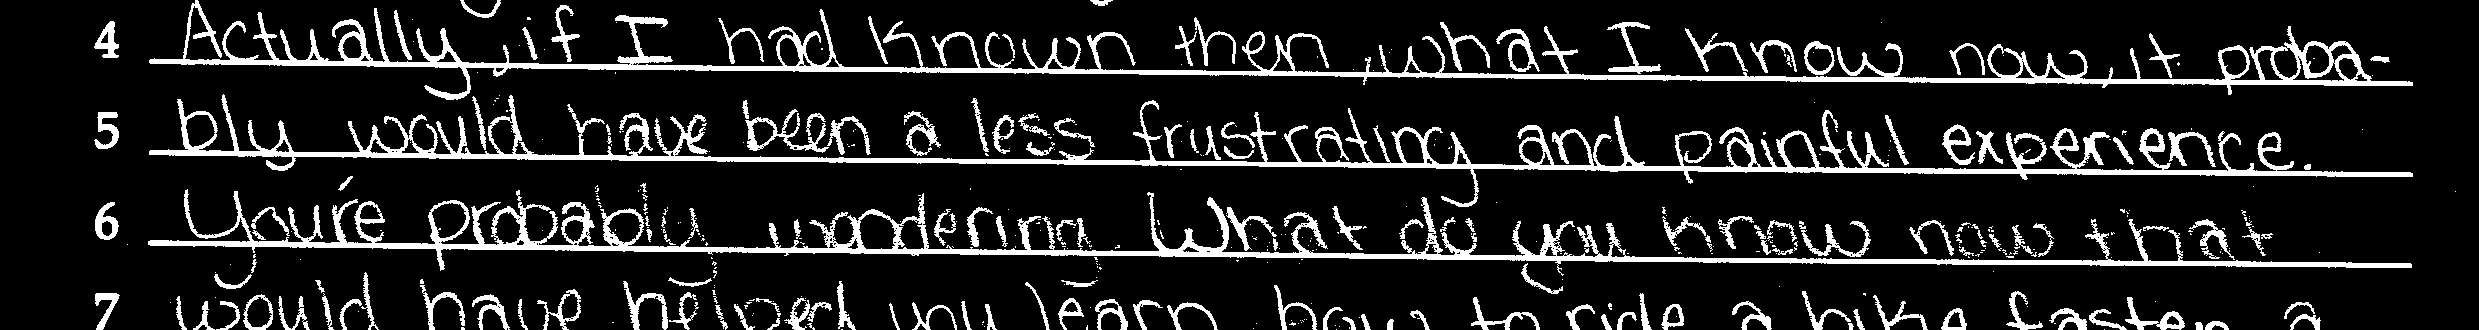 4 Actually, if I had known then, what I know now, it proba-
5 bly would have been a less frustrating and painful experience.
6 You're probably wondering. What do you know now that
7 would have helped you learn how to ride a bike faster a